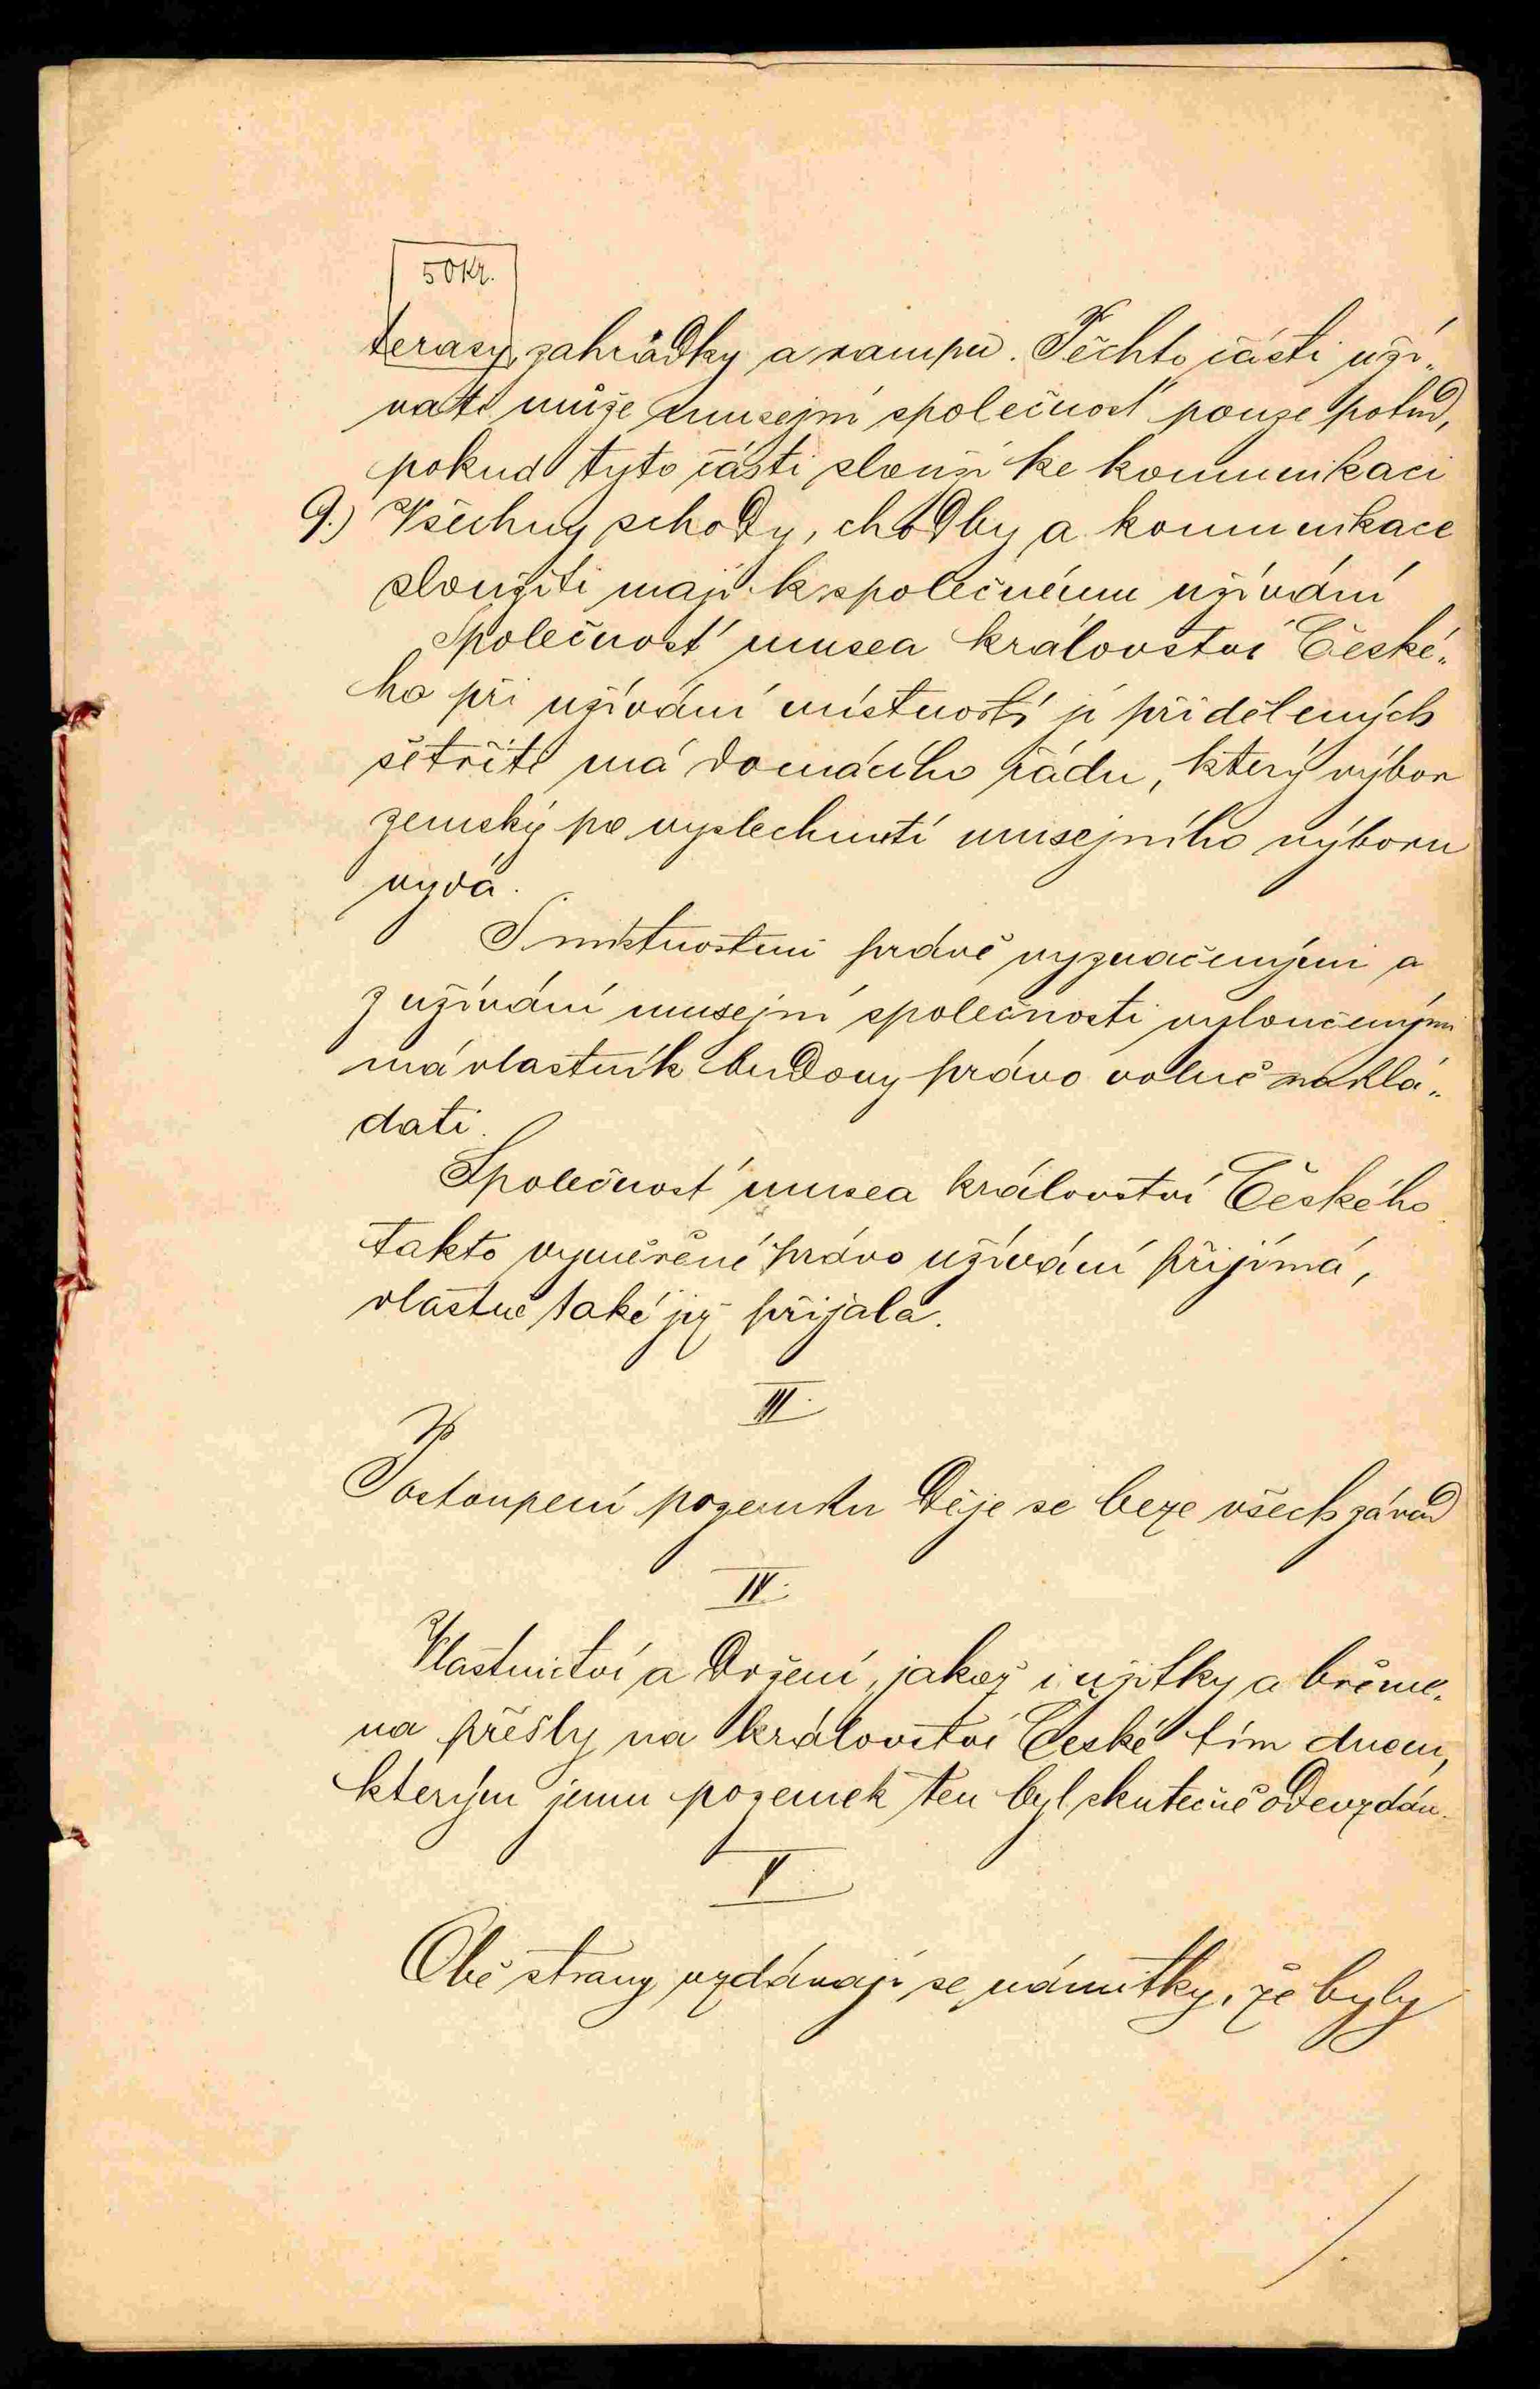 50 kr.
terasy, zahrádky a rampu. Těchto částí uží„
vati může musejní společnosť pouze potud,
pokud tyto části slouží ke kommunikaci
9.) Všechny schody, chodby a kommunikace
sloužiti mají k společnému užívání
Společnosť musea království České„
ho při užívání místností jí přidělených
šetřiti má domácího řádu, který výbor
zemský po vyslechnutí musejního výboru
vydá.
S místnostmi právě vyznačenými a
z užívání musejní společnosti vyloučenými
má vlastník budovy právo volně naklá„
dati.
Společnosť musea království Českého
takto vyměřené právo užívání přijímá,
vlastně také již přijala.
III.
Postoupení pozemku děje se beze všech závad
IV.
Vlastnictví a držení, jakož i užitky a břeme„
na přešly na království České tím dnem,
kterým jemu pozemek ten byl skutečně odevzdán.
V
Obě strany vzdávají se námitky, že byly
./.